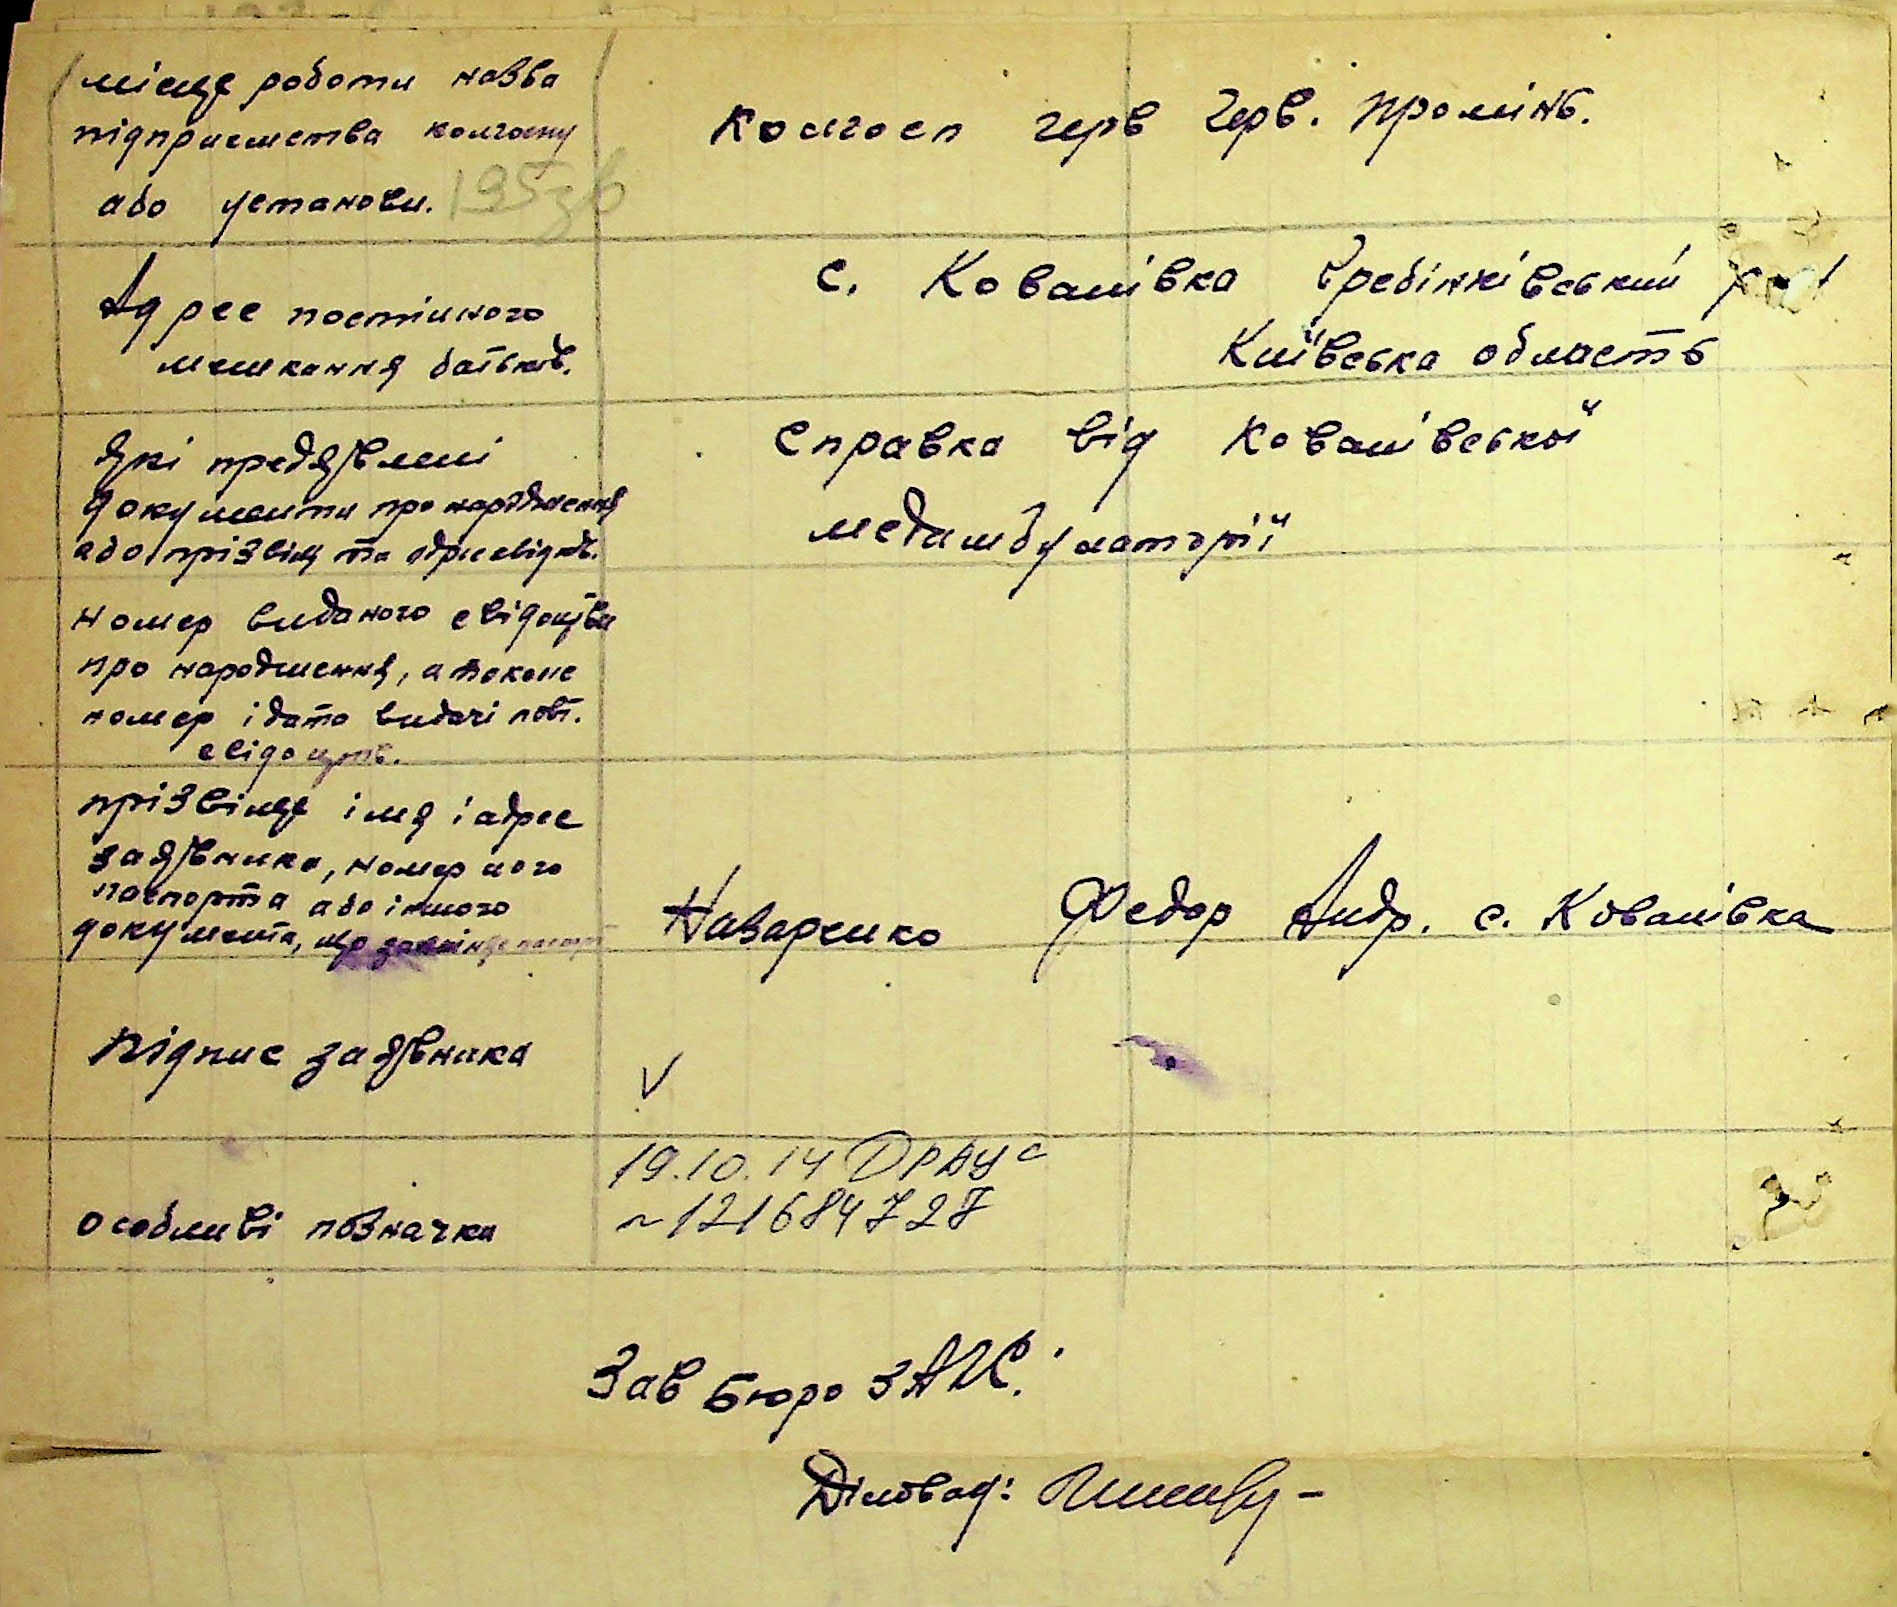 місце роботи назва
підприємства колгоспу
або установи. 195зв
Колгосп черв Черв. промінь.
Адрес постійного
мешкання батьків.
с. Ковалівка Гребінківський
Київська область
Які предявлені
документи про народження
або прізвищ та
Справка від Ковалівської
медамбулаторії
Номер виданого свідоцтва
про народження, а також
номер і дата видачі повт.
свідоцтв.
прізвище імя і адрес
заявника, номер його
паспорта або іншого
документа, що
Назаренко Федор Андр. с. Ковалівка
Підпис заявника
V
Особливі позначка
19.10.14 ДРАЦС
~121684727
Зав Бюро ЗАГС.
Діловод: